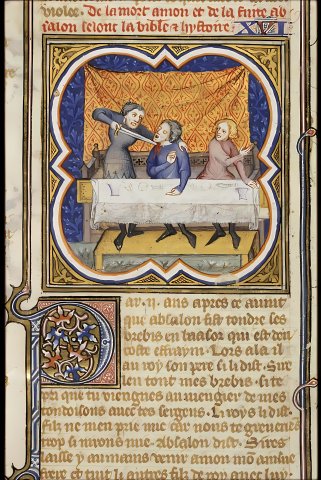 violee. De la mort amon et de la fuite ab
salon selont la bible & hystoire. XVI
Par .ij. ans apres ce auint
que absalon fist tondre ses
brebis en baasor qui est den
coste effraym. Lors ala il
au roy son pere si li dist. Sire
len tont mes brebis. si te
pri que tu viengnes au mengier de mes
tondoisons auec tes sergens. Li roys li dist.
filz ne men prie mie car nous te greuerions
trop si nirons nue. absalon dist. Sires
laisse y au mains venir amon mon ainsne
frere et tuit li autres filz de roy auec luy.